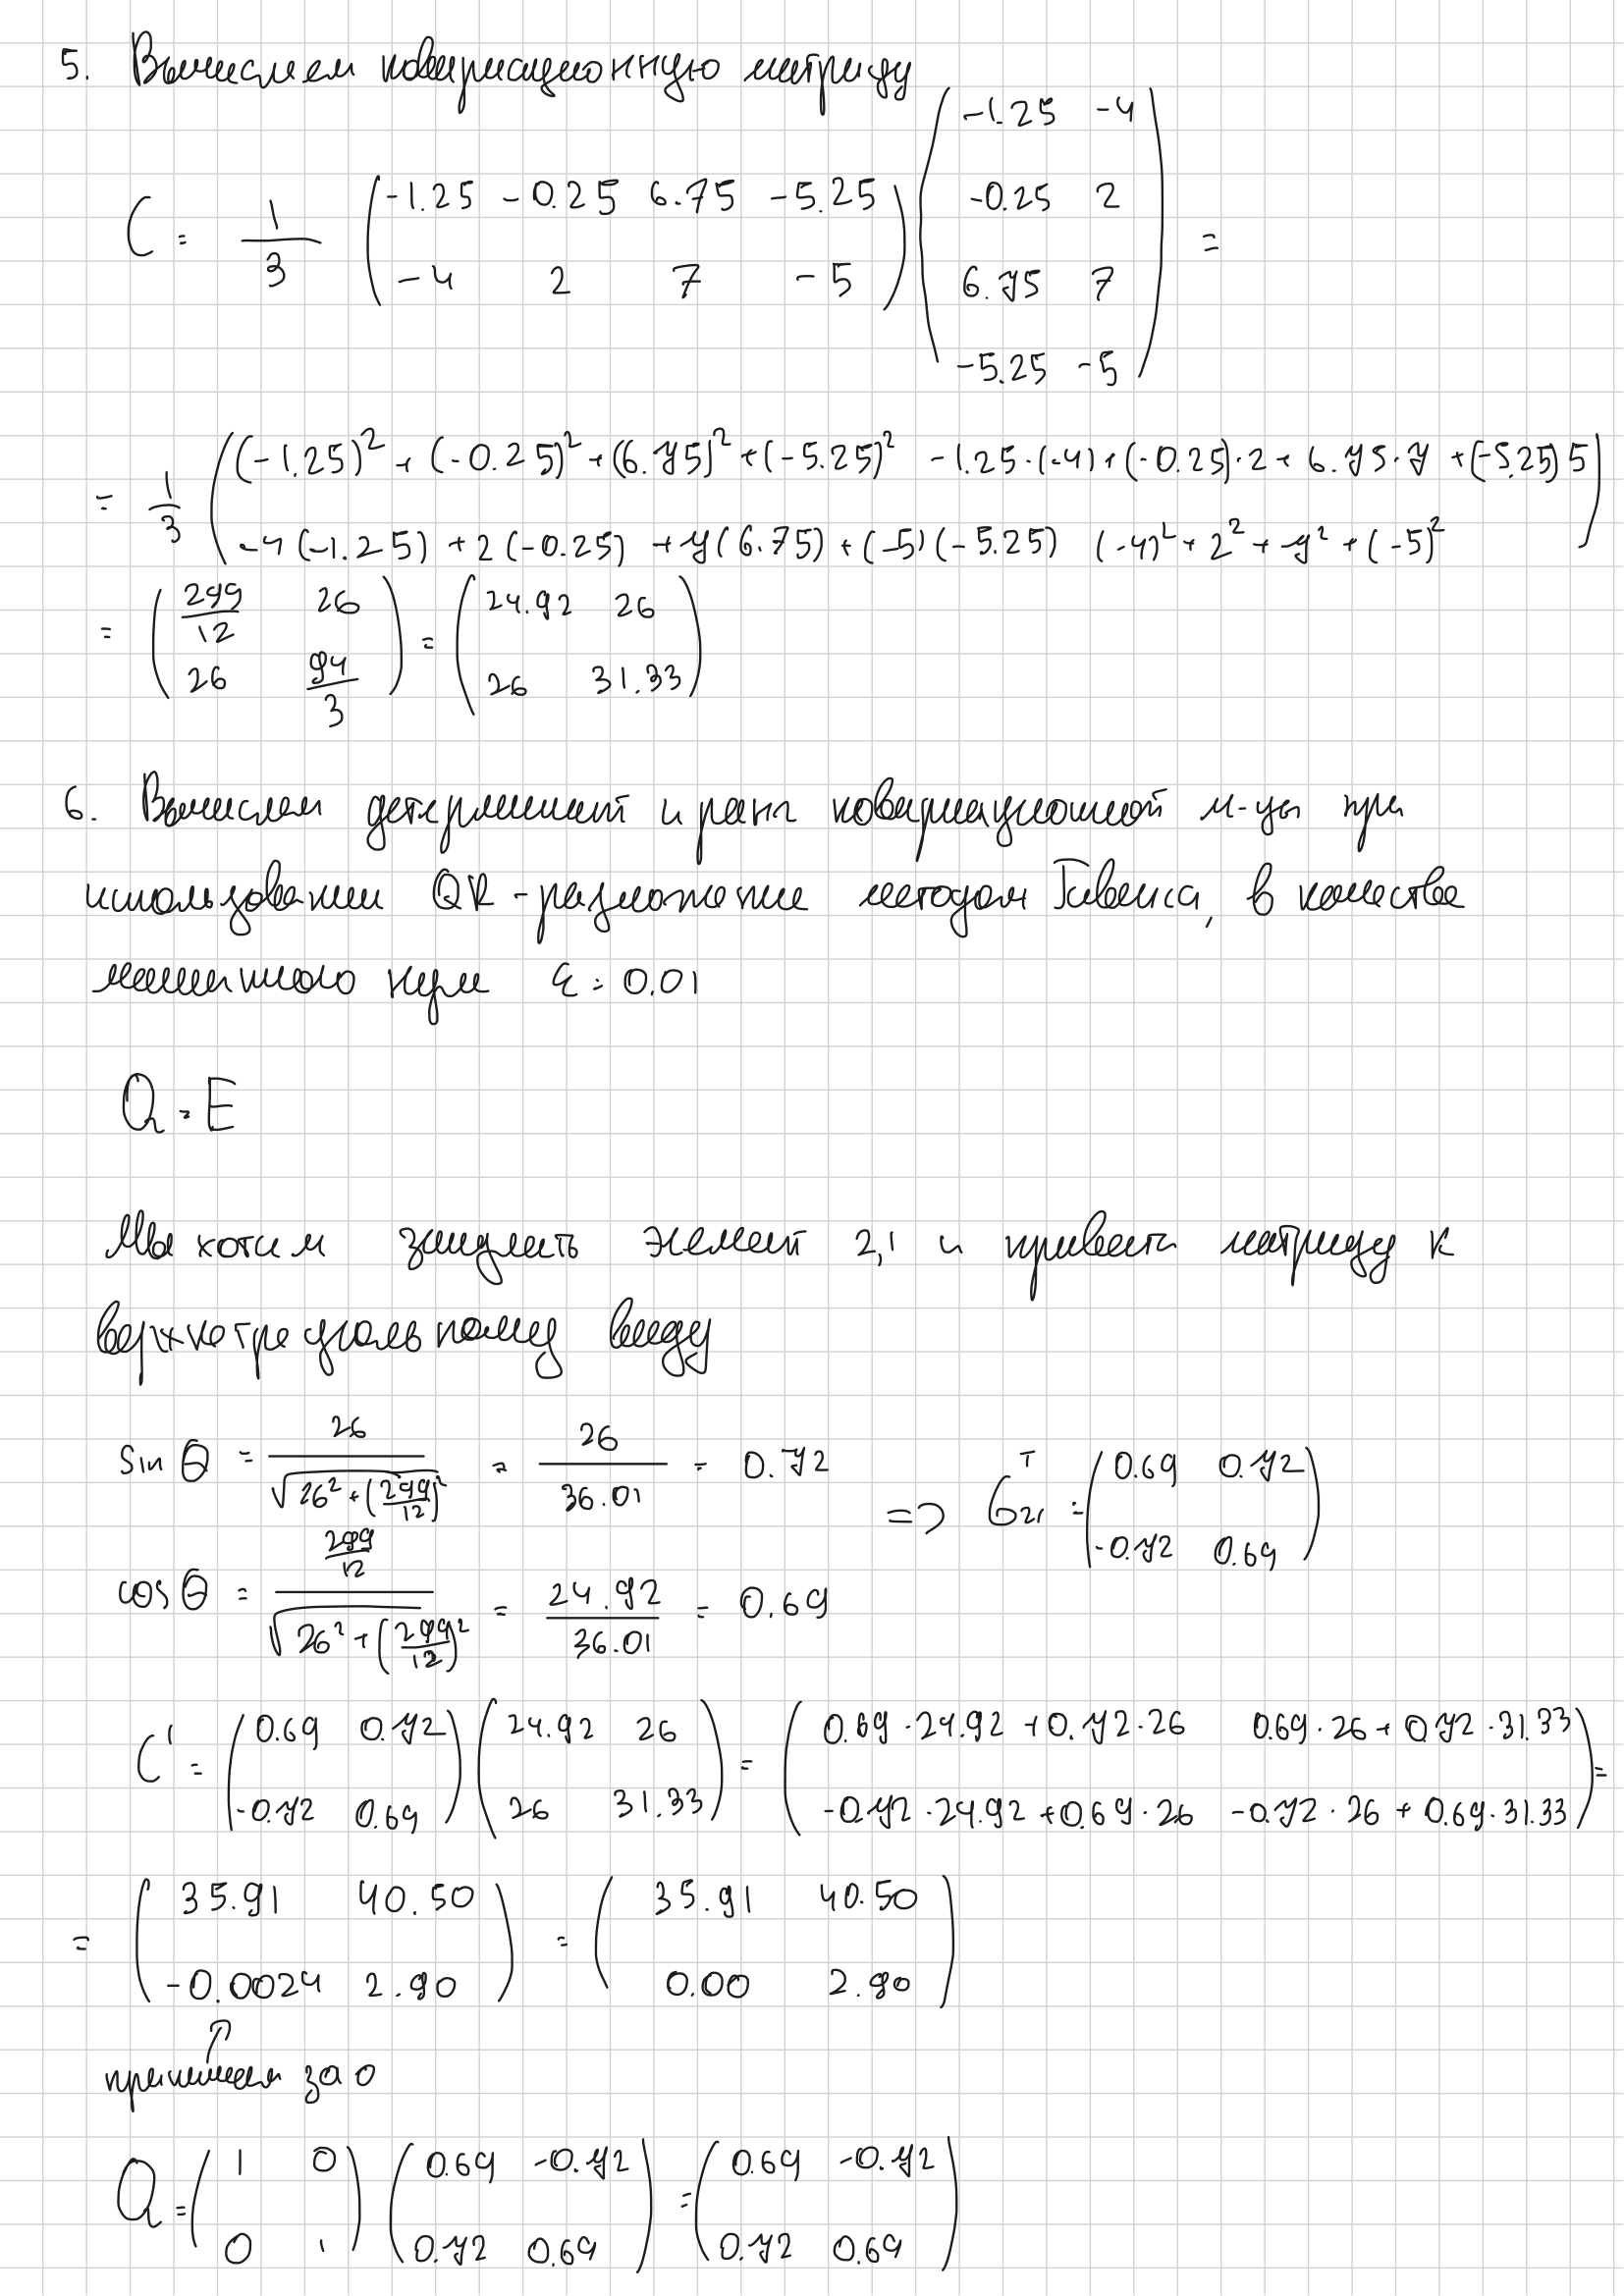 5. Вычислем ковариационную матрицу
C = 1/3 (-1.25 -0.25 6.75 -5.25; -4 2 7 -5) (-1.25 -4; -0.25 2; 6.75 7; -5.25 -5) =
= 1/3 ((-1.25)² + (-0.25)² + (6.75)² + (-5.25)² -1.25·(-4) + (-0.25)·2 + 6.75·7 + (-5.25)5; -4(-1.25) + 2(-0.25) + 7(6.75) + (-5)(-5.25) (-4)² + 2² + 7² + (-5)²)
= (299/12 26; 26 94/3) = (24.92 26; 26 31.33)
6. Вычислем детерминант и ранг ковариационной м-цы при
использовании QR-разложение методом Гивенса, в качестве
машинного нуля ε = 0.01
Q = E
Мы хотим занулить элемент 2,1 и привести матрицу к
верхнетреугольному виду
sin θ = 26/√(26² + (299/12)²) = 26/36.01 = 0.72
=> G₂₁ᵀ = (0.69 0.72; -0.72 0.69)
cos θ = (299/12)/√(26² + (299/12)²) = 24.92/36.01 = 0.69
C' = (0.69 0.72; -0.72 0.69) (24.92 26; 26 31.33) = (0.69·24.92 + 0.72·26 0.69·26 + 0.72·31.33; -0.72·24.92 + 0.69·26 -0.72·26 + 0.69·31.33) =
= (35.91 40.50; -0.0024 2.90) = (35.91 40.50; 0.00 2.90)
принимаем за 0
Q = (1 0; 0 1) (0.69 -0.72; 0.72 0.69) = (0.69 -0.72; 0.72 0.69)